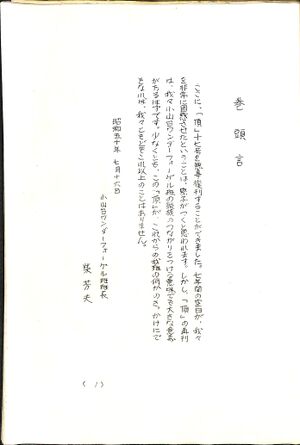 巻頭言
ここに、「頂」十七号を無事復刊することができました。七年間の空白が、我々
を非常に困惑させたということは、察しがつくと思われます。しかし、「頂」の再刊
は、我々小山台ワンダーフォーゲル班の班族のつながりをつける意味でも大きな意義
があるはずです。少なくとも、この「頂」が、これからの我班の何かのき。かけにで
きなれば、我々ともどもこれ以上のことはありません。
昭和五十年 七月十六日
小山台ワンダーフォーゲル班班長
柴 芳夫
( 1 )